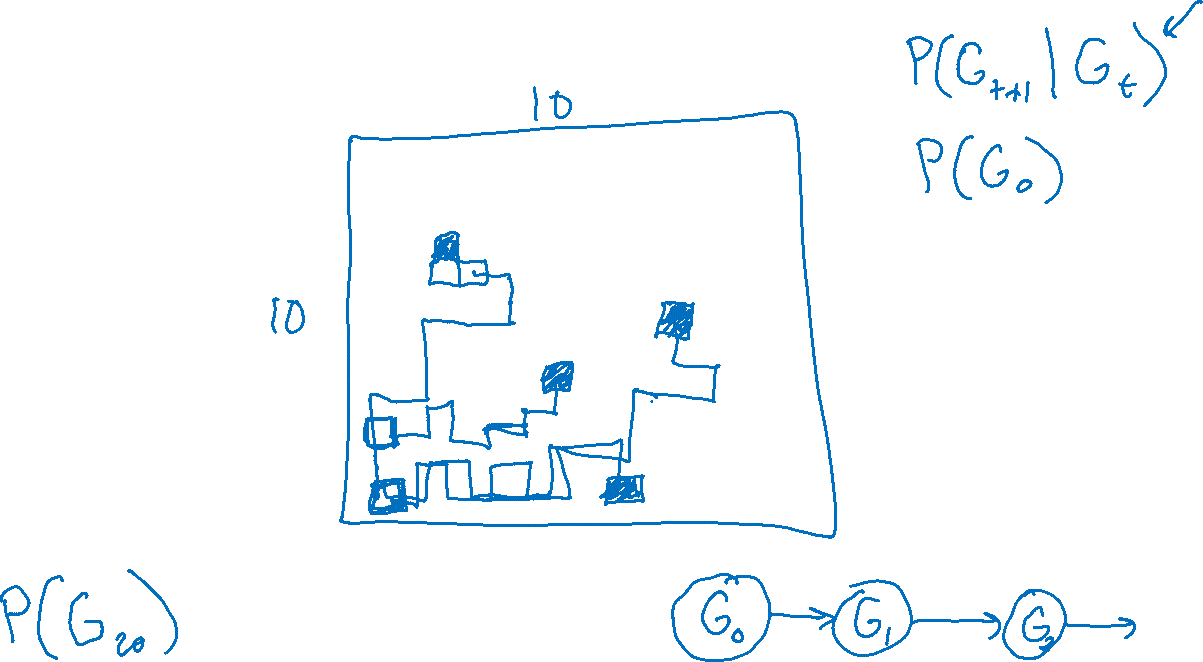 P(G_{t+1} | G_t)
10
P(G_0)
10
P(G_{20})
G_0 → G_1 → G_2 →